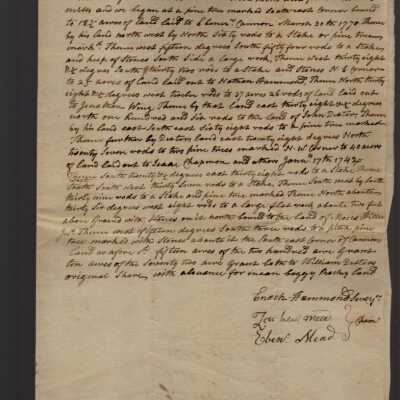 miles and we began at a pine tree marked South east corner bound
to 18½ acres of land laid to Ebenr. Cannon March 20th 1770 Then
by his land north west by North Sixty rods to a Stake or pine tree
mark'd Then west fifteen degrees South fifty four rods to a Stake
and heap of Stones South Side a large rock, Then west thirty eight
& ½ degrees South thirty two rods to a stake and Stones N E corner
to acres of land laid out to Nathan Hammond, Then North thirty
eight & ½ degrees west twelve rods to 27 acres 26 rods of land laid out
to Jonathan Wing Then by that land east thirty eight & ½ degrees
north one hundred and Six rods to the land of John Then
by his land east South east sixty eight rods to a pine tree marked
Then further by land east twenty eight degrees North
twenty Seven rods to two pine trees marked N W corner to 40 acres
of land laid out to Isaac Chapman and others Janry. 17th 174
Then South twenty & ½ degrees east thirty eight rods to a Stake Then
South South west thirty Seven rods to a Stake, Then South west by South
thirty nine rods to a Stake and pine tree marked Then North
thirty Six degrees west eight rods to a large flat rock about two feet
above Ground with Stones on it north bound to the Land of
Then west fifteen degrees South three rods to a pitch pine
tree marked with Stones about it the South east corner of Cannons
Land as afore sd. fifteen acres of the two hundred acre Grant
ten acres of the Seventy two acre Grant both to William
original Share, with alowance for mean boggy Rocky land
Enoch Hammond Survyr.
Ebenr. Mead